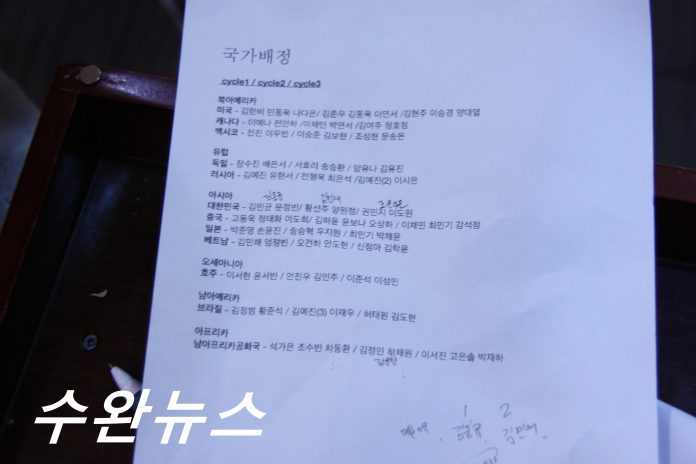 국가배정
cycle1 / cycle2 / cycle3
북아메리카
미국 - 김한비 민동욱 나다은/ 김춘우 김동욱 이연서 /김현주 이승경 양대열
캐나다 - 이예나 천안하 /이채민 박연서 /김여주 정호정
멕시코 - 전진 이우빈 / 이승준 김보현 / 조성현 문송은
유럽
독일 - 장수진 배은서 / 서효라 송승환 / 양유나 김유진
러시아 - 김예진 유현서 / 전형욱 최은석 /김예진(2) 이시온
아시아
대한민국 - 김민균 문정빈/ 황선주 양원정/ 권민지 이도원
중국 - 고동욱 정태화 이도희/ 김하윤 윤보나 오상하 / 이채먼 최민기 강석정
일본 - 박준영 손윤진 / 송승혁 우지원 / 최민기 박채윤
베트남 - 김민채 엄정빈 / 오건하 안도현 / 신정아 김학윤
오세아니아
호주 - 이서현 윤서빈 / 안진우 김민주 / 이준석 이성민
남아메리카
브라질 - 김정범 황준석 / 김예진(3) 이재우 / 허태원 김도현
아프리카
남아프리카공화국 - 석가은 조수빈 차동환 / 김정민 하채원 / 이서진 고은솔 박재하
1 2
김민재
수완뉴스